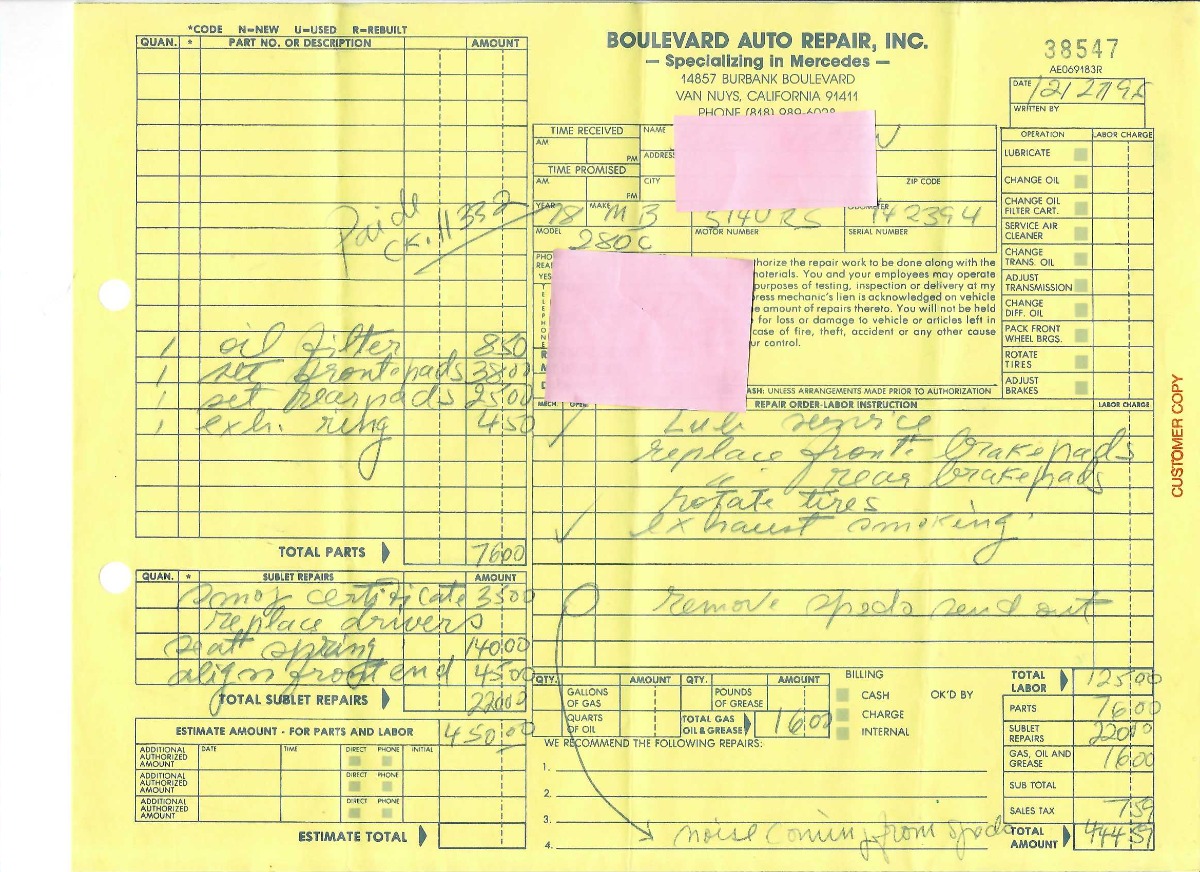 *CODE N=NEW U=USED R=REBUILT
QUAN. * PART NO. OR DESCRIPTION AMOUNT
Paid
CK. 11332
1 oil filter 850
1 set front pads 3800
1 set rear pads 2500
1 exh. ring 450
TOTAL PARTS 7600
QUAN. * SUBLET REPAIRS AMOUNT
smog certificate 3500
replace drivers
seat spring 14000
align front end 4500
TOTAL SUBLET REPAIRS 22000
ESTIMATE AMOUNT - FOR PARTS AND LABOR 450.00
ADDITIONAL AUTHORIZED AMOUNT DATE TIME DIRECT PHONE INITIAL
ADDITIONAL AUTHORIZED AMOUNT DIRECT PHONE
ADDITIONAL AUTHORIZED AMOUNT DIRECT PHONE
ESTIMATE TOTAL
BOULEVARD AUTO REPAIR, INC.
— Specializing in Mercedes —
14857 BURBANK BOULEVARD
VAN NUYS, CALIFORNIA 91411
PHONE (818) 989-6028
38547
AE069183R
DATE 12/27/95
WRITTEN BY
TIME RECEIVED
AM PM
TIME PROMISED
AM PM
NAME
ADDRESS
CITY ZIP CODE
YEAR 78 MAKE MB 514URS ODOMETER 142394
MODEL 280C MOTOR NUMBER SERIAL NUMBER
PHO
REA
YES
TELEPHONE
thorize the repair work to be done along with the
aterials. You and your employees may operate
urposes of testing, inspection or delivery at my
ress mechanic's lien is acknowledged on vehicle
e amount of repairs thereto. You will not be held
for loss or damage to vehicle or articles left in
case of fire, theft, accident or any other cause
ur control.
ASH: UNLESS ARRANGEMENTS MADE PRIOR TO AUTHORIZATION
OPERATION LABOR CHARGE
LUBRICATE
CHANGE OIL
CHANGE OIL FILTER CART.
SERVICE AIR CLEANER
CHANGE TRANS. OIL
ADJUST TRANSMISSION
CHANGE DIFF. OIL
PACK FRONT WHEEL BRGS.
ROTATE TIRES
ADJUST BRAKES
MECH. OPER. REPAIR ORDER-LABOR INSTRUCTION LABOR CHARGE
Lub service
replace front brakepads
" rear brakepads
rotate tires
exhaust smoking
remove speedo send out
QTY. AMOUNT QTY. AMOUNT
GALLONS OF GAS POUNDS OF GREASE
QUARTS OF OIL TOTAL GAS OIL & GREASE 1600
BILLING
CASH OK'D BY
CHARGE
INTERNAL
WE RECOMMEND THE FOLLOWING REPAIRS:
1.
2.
3.
4. noise coming from speedo
TOTAL LABOR 12500
PARTS 76.00
SUBLET REPAIRS 22000
GAS, OIL AND GREASE 1600
SUB TOTAL
SALES TAX 759
TOTAL AMOUNT 444.59
CUSTOMER COPY